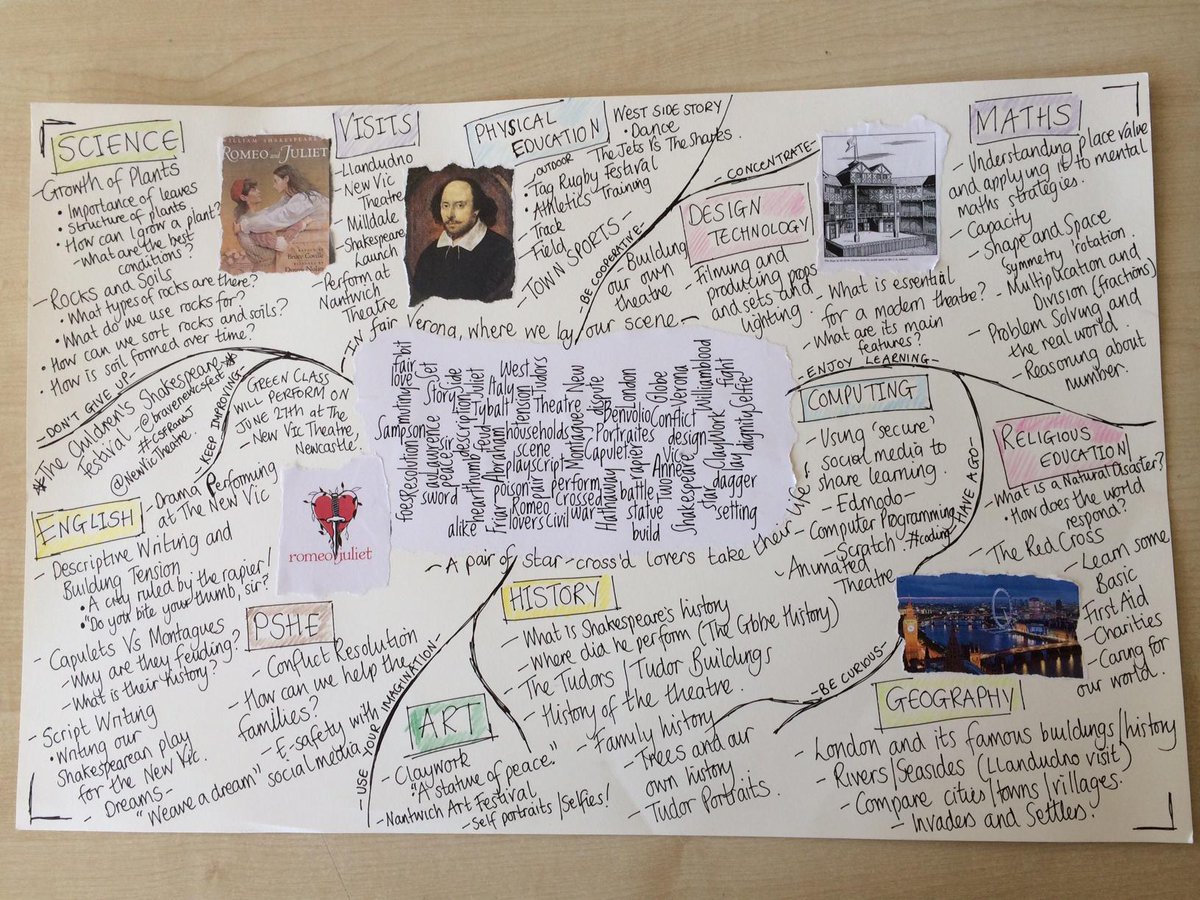 SCIENCE
- Growth of Plants
• Importance of leaves
• Structure of plants
• How can I grow a plant?
- What are the best
conditions?
- Rocks and Soils
• What types of rocks are there?
• What do we use rocks for?
• How can we sort rocks and soils?
• How is soil formed over time?
- DON'T GIVE UP -
ROMEO and JULIET
Bruce Coville
VISITS
- Llandudno
- New Vic
Theatre
- Milldale
- Shakespeare
Launch
- Perform at
Nantwich
Theatre
PHYSICAL
EDUCATION
WEST SIDE STORY
• Dance
The Jets Vs The Sharks.
- OUTDOOR
- Tag Rugby Festival
- Athletics Training
- Track
- Field
- TOWN SPORTS
- BE COOPERATIVE -
- CONCENTRATE -
DESIGN
TECHNOLOGY
- Building
our own
theatre
- Filming and
producing props
and sets and
lighting
- What is essential
for a modern theatre?
- What are its main
features?
- ENJOY LEARNING -
MATHS
- Understanding place value
and applying it to mental
maths strategies.
- Capacity
- Shape and Space
symmetry rotation.
- Multiplication and
Division (fractions)
- Problem Solving and
the real world.
- Reasoning about
number.
*The Children's Shakespeare*
Festival - @bravenewfest
#CSFRandJ
@NewVicTheatre.
- KEEP IMPROVING -
GREEN CLASS
WILL PERFORM ON
JUNE 27th AT THE
- New Vic Theatre,
Newcastle.
- IN fair Verona, where we lay our scene -
fair
bit
love
Jet
Story
Side
West
Italy
Tudors
Sampson
mutiny
Tybalt
tension
Theatre
New
dispute
London
Globe
Verona
William
blood
fight
Selfie
Juliet
description
feud
Laurence
peace
sir
households
scene
playscript
Montagues
Capulet
Portraites
Benvolio
Conflict
design
Vic
ClayWork
dignity
lay
foes
Resolution
sword
heart
thumb
Friar
Abraham
poison
pair
perform
crossed
Romeo
lovers
Civil
war
Hathaway
battle
rapier
Two
Anne
statue
build
Shakespeare
star
dagger
setting
alike
- A pair of star-cross'd lovers take their life
romeo juliet
ENGLISH
- Drama Performing
at The New Vic
- Descriptive Writing and
Building Tension
• A city ruled by the rapier!
• "Do you bite your thumb, sir?"
- Capulets Vs Montagues
- Why are they feuding?
- What is their history?
- Script Writing
• Writing our
Shakespearean play
for the New Vic.
- Dreams -
"Weave a dream"
PSHE
- Conflict Resolution
- How can we help the
families?
- E-safety with
social media
- USE YOUR IMAGINATION -
ART
- Claywork
- "A statue of peace."
- Nantwich Art Festival
- Self portraits/selfies!
HISTORY
- What is Shakespeare's history
- Where did he perform (The Globe History)
- The Tudors / Tudor Buildings
- History of the theatre.
- Family history
- Trees and our
own history
- Tudor Portraits.
COMPUTING
- Using 'secure'
social media to
share learning.
- Edmodo -
- Computer Programming
- Scratch. #coding
- Animated
Theatre
- HAVE A GO -
RELIGIOUS
EDUCATION
- What is a Natural Disaster?
- How does the world
respond?
- The Red Cross
- Learn some
Basic
First Aid
- Charities
- Caring for
our world.
- BE CURIOUS -
GEOGRAPHY
- London and its famous buildings/history
- Rivers/Seasides (Llandudno visit)
- Compare cities/towns/villages.
- Invaders and Settlers.